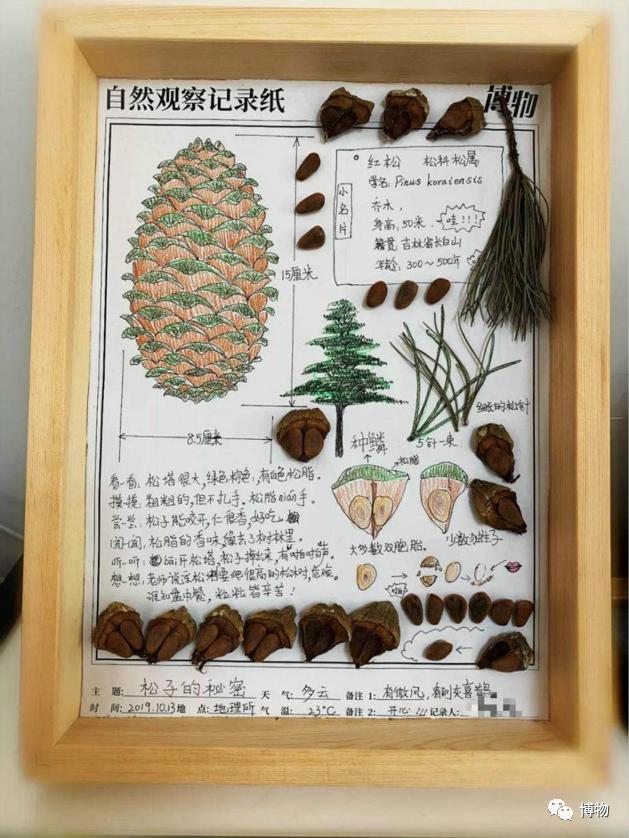 自然观察记录纸
博物
小名片
红松 松科松属
学名: Pinus koraiensis
乔木,
身高, 50米. 哇!!!
籍贯 吉林省长白山
年龄: 300~500年
15厘米
8.5厘米
细长的松针
5针一束
种鳞
松脂
大多数双胞胎。
少数独生子
看一看: 松塔很大, 绿色棕色, 有白色松脂。
摸一摸: 粗粗的, 但不扎手。松脂nián手。
尝一尝: 松子能咬开, 仁很香, 好吃
闻一闻, 松脂的香味, 像去了树林里。
听一听: bāi开松塔, 松子掉出来, 有啪啪声。
想一想: 老师说连松塔要爬很高的松树, 危险。
谁知盘中餐, 粒粒皆辛苦!
主 题: 松子的秘密 天 气: 多云 备注1: 有微风, 看到灰喜鹊。
时 间: 2019.10.13 地 点: 地理所 气 温: 23℃ 备注2: 开心!!! 记录人:
博物